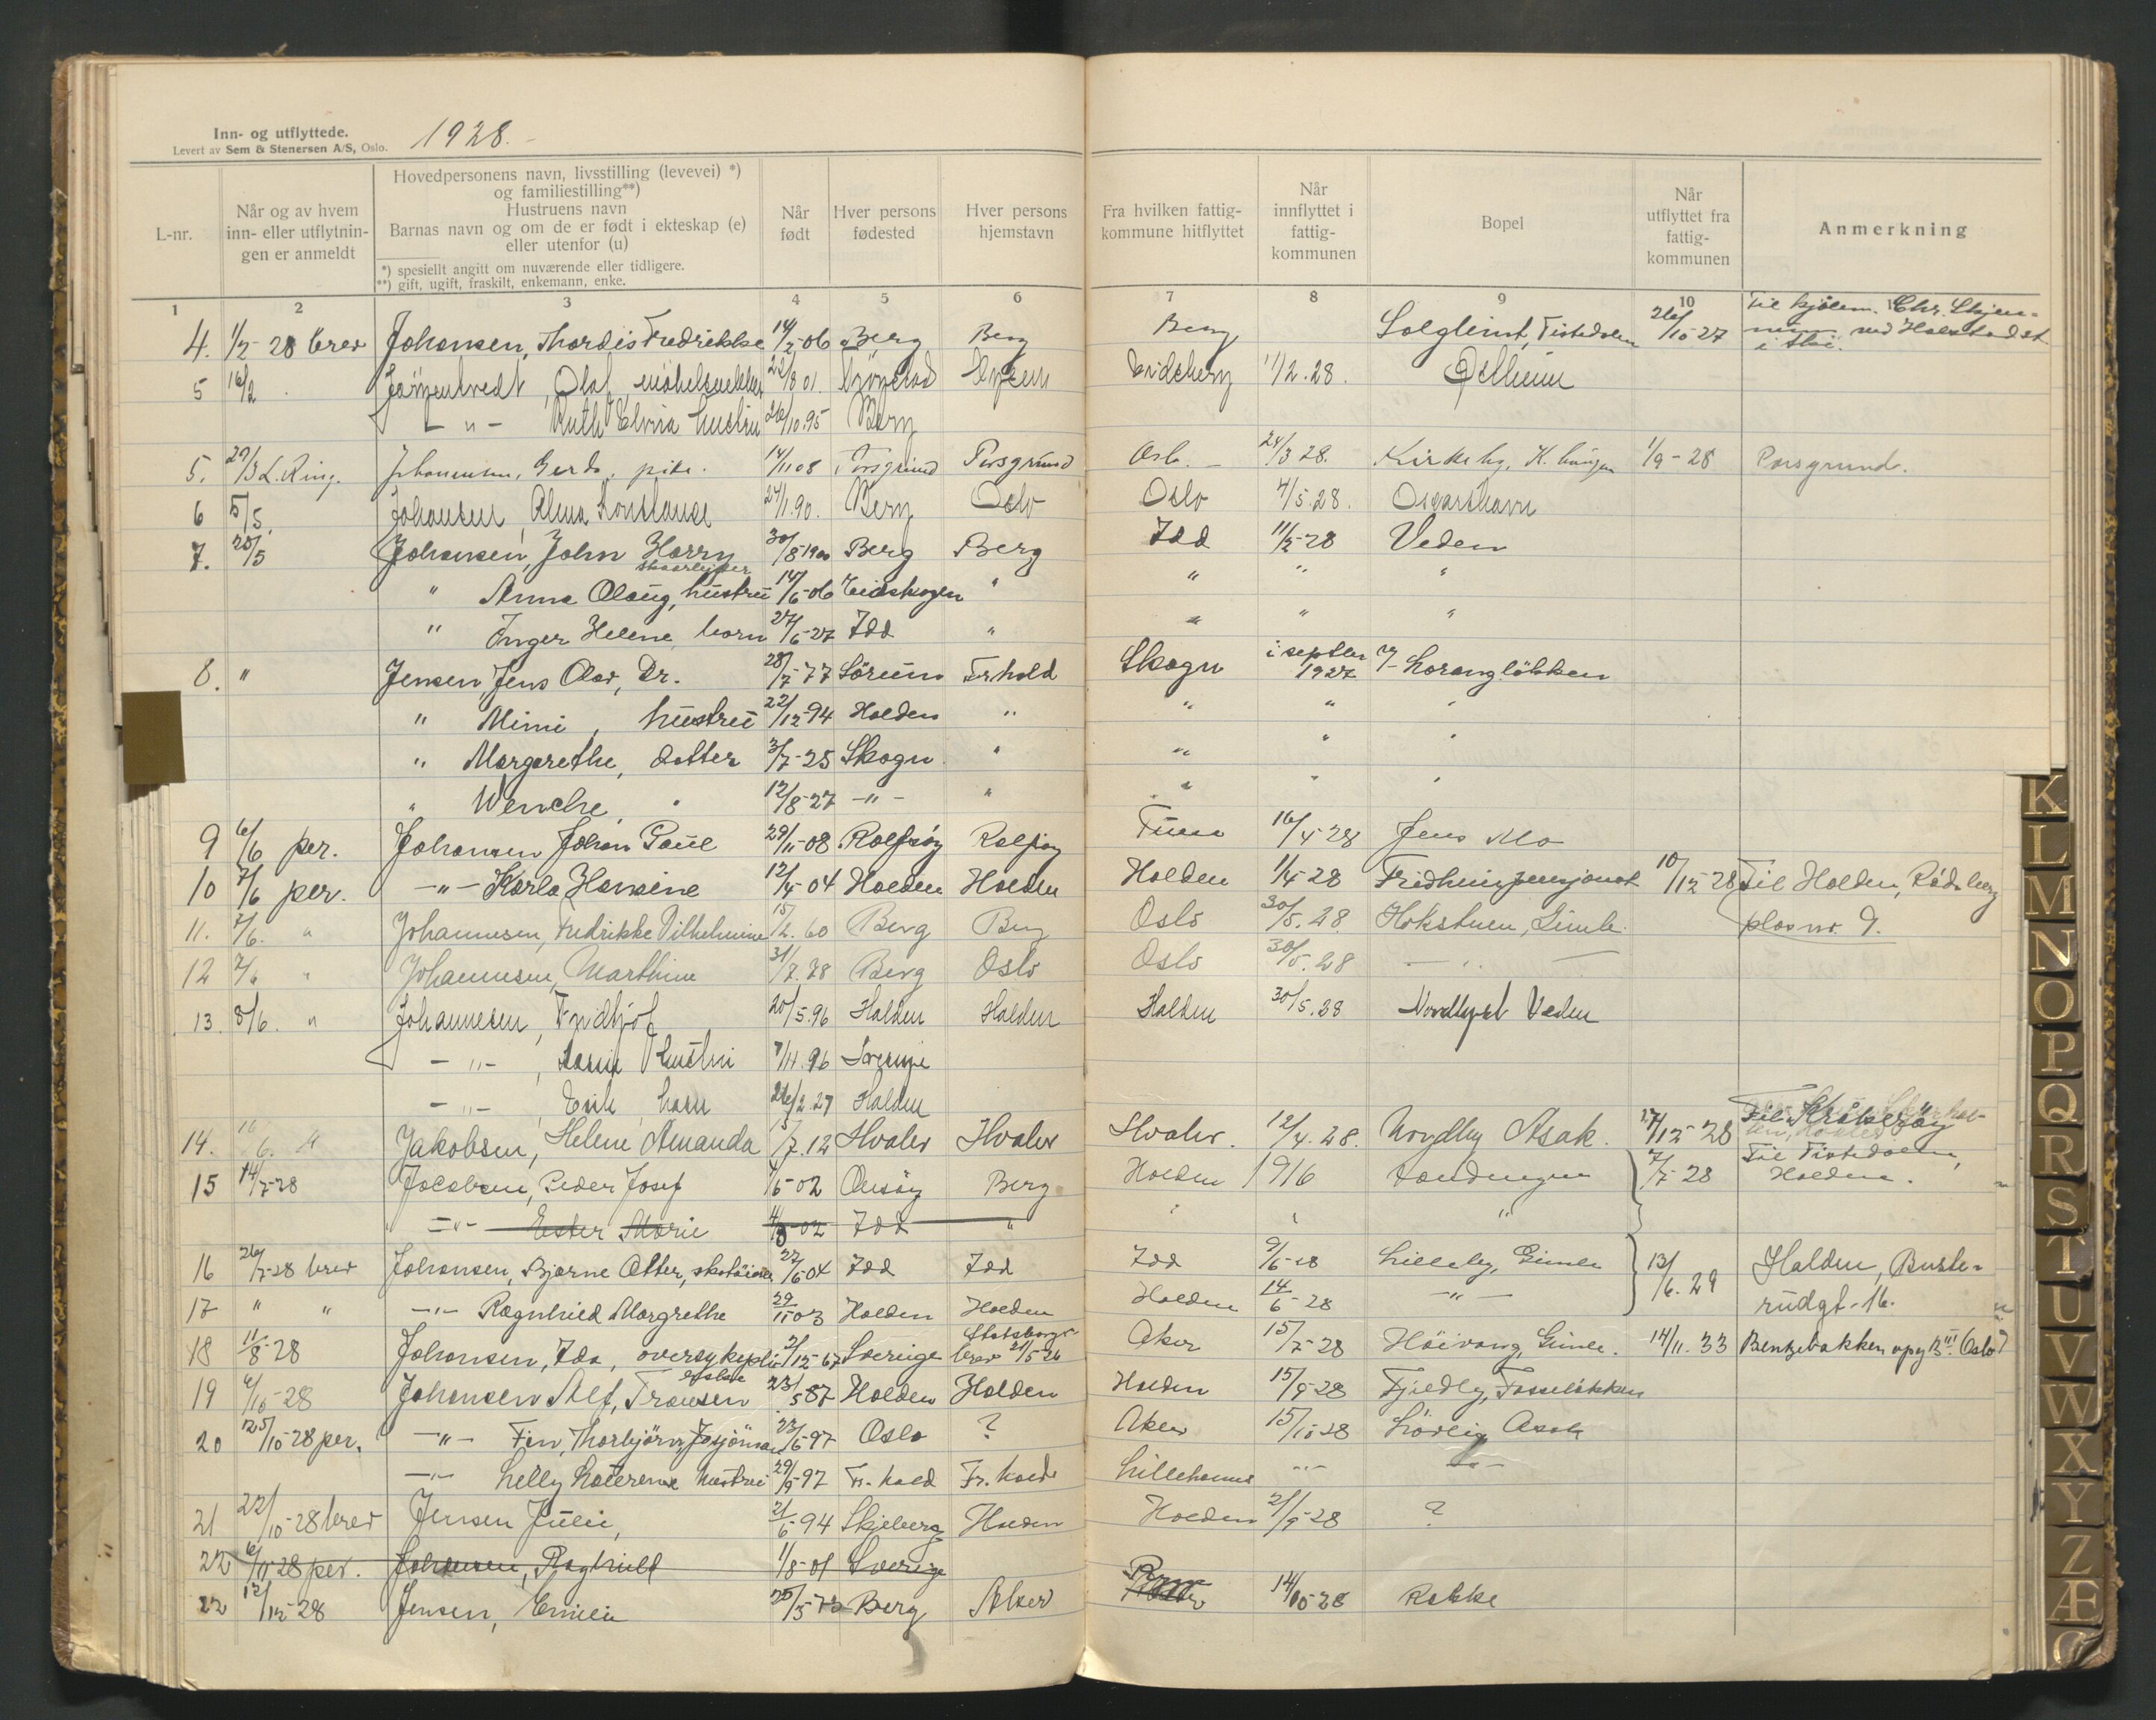 Inn- og utflyttede.
Levert av Sem & Stenersen A/S, Oslo.
1928.
L-nr.
Når og av hvem inn- eller utflytnin-gen er anmeldt
Hovedpersonens navn, livsstilling (levevei) *)
og familiestilling**)
Hustruens navn
Barnas navn og om de er født i ekteskap (e)
eller utenfor (u)
*) spesiellt angitt om nuværende eller tidligere.
**) gift, ugift, fraskilt, enkemann, enke.
Når født
Hver persons fødested
Hver persons hjemstavn
Fra hvilken fattig-kommune hitflyttet
Når innflyttet i fattig-kommunen
Bopel
Når utflyttet fra fattig-kommunen
Anmerkning
1 2 3 4 5 6 7 8 9 10
4. 1/2-28 brev Johansen, Thordis Fredrikke 14/2-06 Berg Berg Berg Solglimt, Tistedalen 26/10 27 Til Chr.
5 16/2 Olaf 01. Eidsberg 1/2.28.
- " - Ruth Elvira hustru 26/10.95 Berg
5. 29/3 L. Ring. Johannesen, Gerda, pike. 14/11 08 Porsgrund Porsgrund Oslo 24/3 28. Kirkeby, 1/9-28 Porsgrund.
6 5/5. Johansen, Alma Konstanse 24/1.90. Berg Oslo Oslo 4/5.28. Oscarshavn
7. 20/5 Johansen, John Harry 30/8-1900 Berg Berg Idd 11/5-28 Veden
" Anna Olaug, hustru 14/6-06 Eidskogen " " " "
" Inger Helene, barn 27/6-27 Idd " " " "
8. " Jensen, Jens Olav, Dr. 28/7-77 Sörum Fr.hald Skogn i septbr 1927
" Mimi, hustru 22/12-94 Halden " " " "
" Margarethe, datter 3/7-25 Skogn " " " "
" Wenche " 12/8-27 - " - " " " "
9 6/6 per. Johansen Johan Paul 29/11-08 Rolfsöy Rolfsöy Tune 16/4-28 Jens Mo
10 7/6 per. - " - Karla Hansine 12/4-04 Halden Halden Halden 1/4-28 10/12-28 Til Halden, Rödsberg
plass nr. 9.
11. 7/6. " Johannesen, Fredrikke Vilhelmine 15/2.60 Berg Berg Oslo 30/5.28 Hokstuen, Gimle
12 7/6 " Johannesen, Marthine 31/7.78 Berg Oslo Oslo 30/5.28 - " -
13. 8/6. " Johannesen, Fridtjof 20/5.96 Halden Halden Halden 30/5.28 Nordlyst Veden
- " -, hustru 7/11.96 Sverige
- " -, Erik, barn 26/2.27 Halden
14. Jakobsen, Helene Amanda 15/7.12 Hvaler Hvaler Hvaler. 12/4.28. Nordby Asak. 27/12-28 Til Kråkeröy
15 14/7-28 Jacobsen, Peder Josef 02 Onsöy Berg Halden 1916 7/7-28 Til Tistedalen, Halden.
- " - Ester Marie 02 Idd " " " "
16 26/7-28 brev Johansen, Bjarne Otter, 27/6-04 Idd Idd Idd 9/6-28 Lilleby, Gimle 13/6.29 Halden, Buste-
rudgt. 16.
17 " " - " - Ragnhild Margrethe 29/11 03 Halden Halden Halden 14/6-28 - " -
18 11/8-28 Johansen, Ida, oversykepl. 21/12-67 Sverige Statsborger brev 21/5 26 Aker 15/7-28 Höivang Gimle. 14/11.33 Bentzebakken Oslo
19 6/10-28 Johansen Alf, Fransen 23/5 87 Halden Halden Halden 15/9-28 Fjeldly, Fosselökken
20 25/10-28 per. - " - Finn, Thorbjörn, sjömann 23/6-97 Oslo ? Aker 15/10-28 Asak
- " - Lilly Katerine hustru 29/9-97 Fr. hald Fr. hald Lillehamer - " - - " -
21 22/10-28 brev Jensen Julie, 21/6-94 Skjeberg Halden Halden 21/9-28 ?
22 6/11-28 per. Johansen, Ragnhild 1/8-01 Sverige
22 12/12-28 Jensen, Emilie 25/5-73 Berg Aker 14/10-28 Rakke
K
L
M
N
O
P
Q
R
S
T
U
V
W
X
Y
Z
Æ